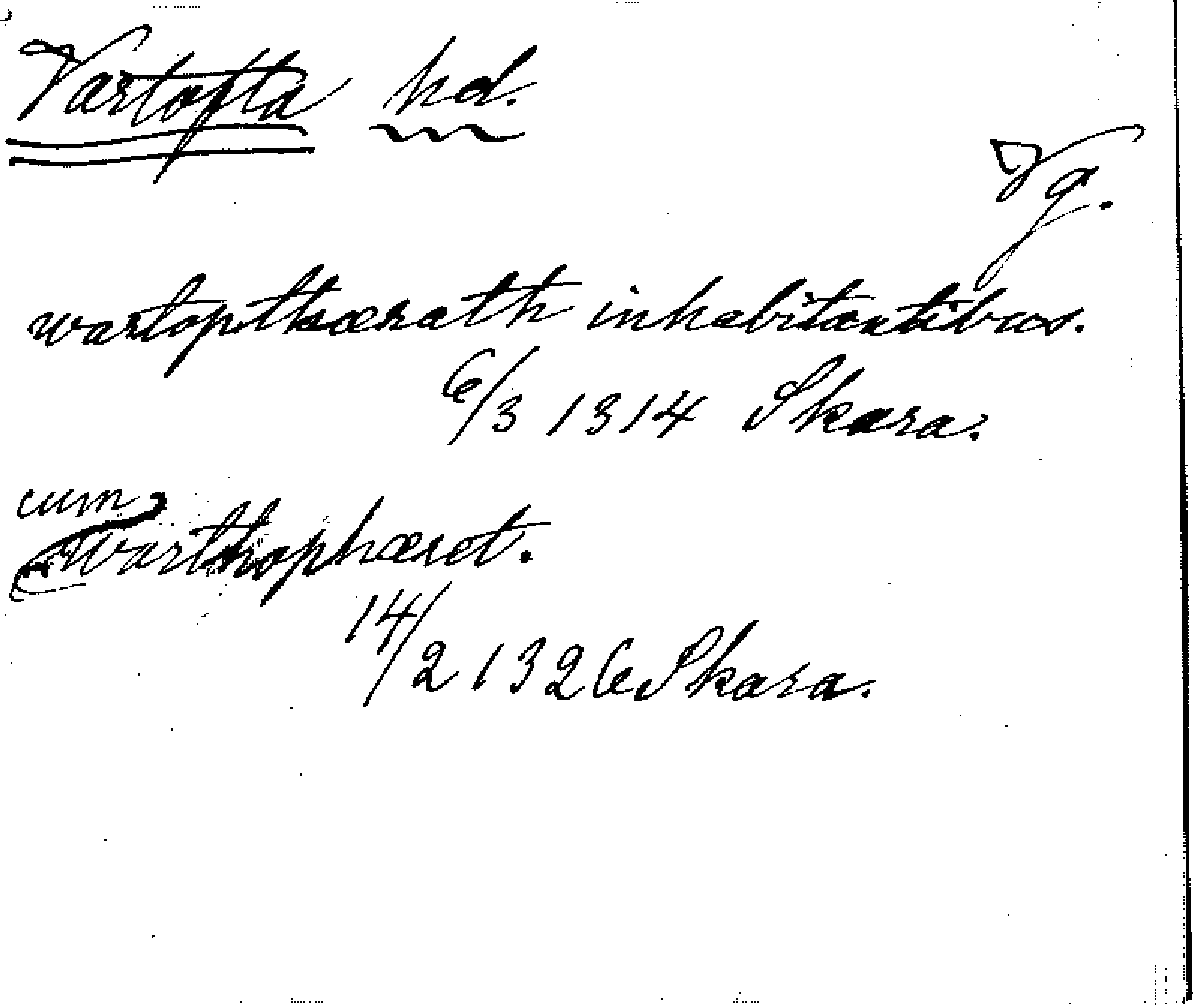 Vartofta hd.
Vg.
wartopthærath inhabitantibus.
6/3 1314 Skara.
cum
Warthophæret.
14/2 1326 Skara.